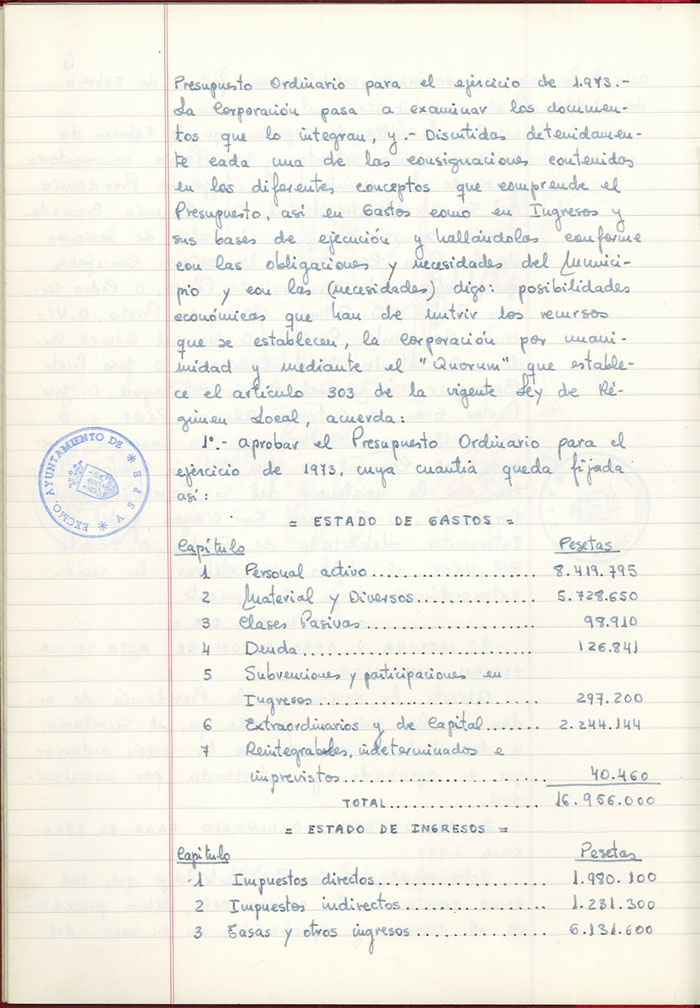 Presupuesto Ordinario para el ejercicio de 1.973.-
La Corporación pasa a examinar los documen-
tos que lo integran, y.- Discutidas detenidamen-
te cada una de las consignaciones contenidas
en los diferentes conceptos que comprende el
Presupuesto, así en Gastos como en Ingresos y
sus bases de ejecución y hallándolas conforme
con las obligaciones y necesidades del Munici-
pio y con las (necesidades) digo: posibilidades
económicas que han de nutrir los recursos
que se establecen, la Corporación por unani-
midad y mediante el "Quorum" que estable-
ce el artículo 303 de la vigente Ley de Ré-
gimen Local, acuerda:
1º.- aprobar el Presupuesto Ordinario para el
ejercicio de 1973, cuya cuantía queda fijada
así:
EXCMO. AYUNTAMIENTO DE
= ESTADO DE GASTOS =
Capítulo Pesetas
1 Personal activo.................. 8.419.795
2 Material y Diversos.............. 5.728.650
3 Clases Pasivas................... 98.910
4 Deuda............................ 126.841
5 Subvenciones y participaciones en
Ingresos......................... 297.200
6 Extraordinarios y de Capital..... 2.244.144
7 Reintegrables, indeterminados e
imprevistos...................... 40.460
TOTAL................. 16.956.000
= ESTADO DE INGRESOS =
Capítulo Pesetas
1 Impuestos directos............... 1.980.100
2 Impuestos indirectos............. 1.231.300
3 Tasas y otros ingresos........... 6.131.600